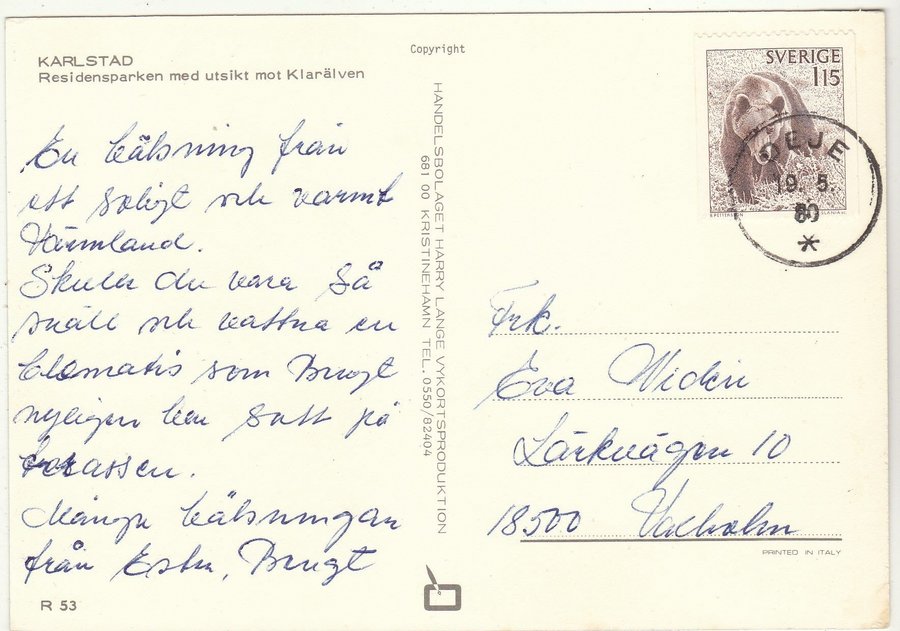 KARLSTAD
Residensparken med utsikt mot Klarälven
Copyright
SVERIGE
1 15
DEJE
19. 5.
80
En hälsning från
ett soligt och varmt
Värmland.
Skulle du vara så
snäll och vattna en
klematis som Bengt
nyligen har satt på
terassen.
Många hälsningar
från Ester, Bengt
HANDELSBOLAGET HARRY LANGE VYKORTSPRODUKTION
681 00 KRISTINEHAMN TEL. 0550/82404
Frk.
Eva Widén
Lärkvägen 10
18500 Vaxholm
PRINTED IN ITALY
R 53